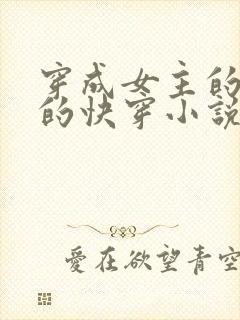 穿成女主的
的快穿小說
愛在欲望青空